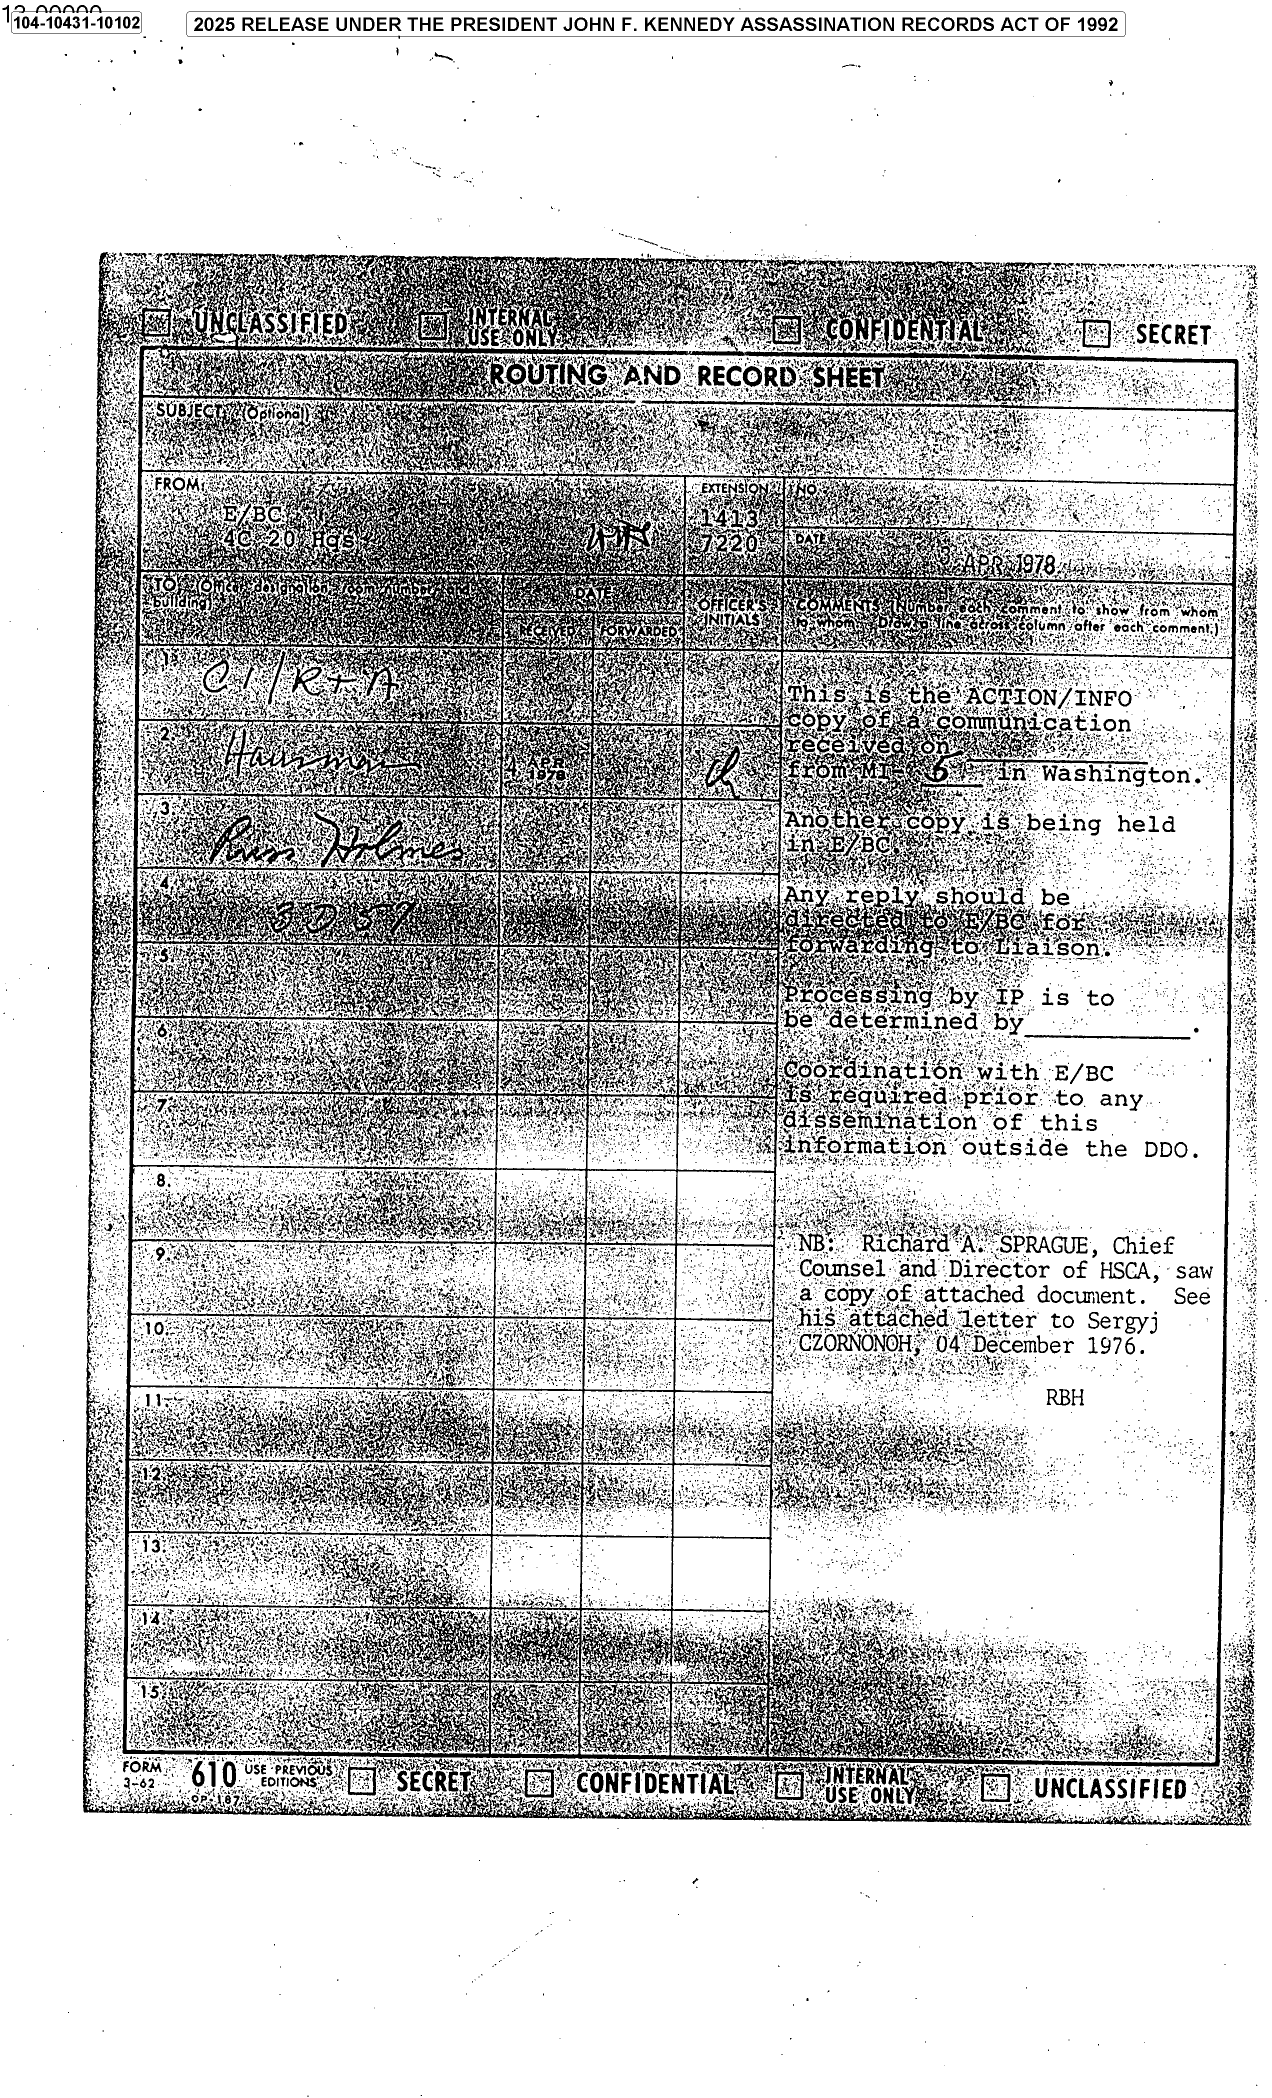 13-00000
104-10431-10102
2025 RELEASE UNDER THE PRESIDENT JOHN F. KENNEDY ASSASSINATION RECORDS ACT OF 1992
UNCLASSIFIED INTERNAL USE ONLY CONFIDENTIAL SECRET
ROUTING AND RECORD SHEET
SUBJECT: (Optional)
FROM:
E/BC
4C 20 Hqs
EXTENSION
1413
7220
NO.
DATE
APR 1978
TO: (Officer designation, room number, and
building)
DATE
RECEIVED
FORWARDED
OFFICER'S
INITIALS
COMMENTS (Number each comment to show from whom
to whom. Draw a line across column after each comment.)
1.
CI/R+A
2.
Hausman
4 APR
1978
3.
Russ Holmes
4.
3 D 57
5.
6.
7.
8.
9.
10.
11.
12.
13.
14.
15.
This is the ACTION/INFO
copy of a communication
received on
from MI- 5 in Washington.
Another copy is being held
in E/BC.
Any reply should be
directed to E/BC for
forwarding to Liaison.
Processing by IP is to
be determined by .
Coordination with E/BC
is required prior to any
dissemination of this
information outside the DDO.
NB: Richard A. SPRAGUE, Chief
Counsel and Director of HSCA, saw
a copy of attached document. See
his attached letter to Sergyj
CZORNONOH, 04 December 1976.
RBH
FORM
3-62
610
USE PREVIOUS
EDITIONS
SECRET CONFIDENTIAL INTERNAL USE ONLY UNCLASSIFIED